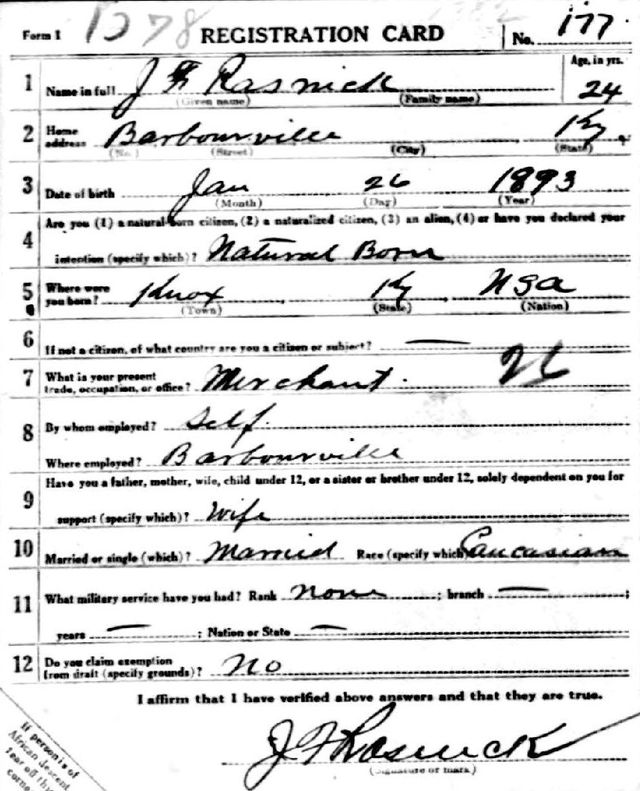 Form 1 1578 REGISTRATION CARD No. 177
1 Name in full J F Rasnick Age, in yrs. 24
(Given name) (Family name)
2 Home address Barbourville Ky.
(No.) (Street) (City) (State)
3 Date of birth Jan 26 1893
(Month) (Day) (Year)
Are you (1) a natural-born citizen, (2) a naturalized citizen, (3) an alien, (4) or have you declared your
4 intention (specify which)? Natural Born
5 Where were you born? Knox Ky USA
(Town) (State) (Nation)
6 If not a citizen, of what country are you a citizen or subject? —
7 What is your present trade, occupation, or office? Merchant. 26
8 By whom employed? Self.
Where employed? Barbourville
9 Have you a father, mother, wife, child under 12, or a sister or brother under 12, solely dependent on you for
support (specify which)? Wife
10 Married or single (which)? Married Race (specify which) Caucasian
11 What military service have you had? Rank None ; branch — ;
years — ; Nation or State —
12 Do you claim exemption from draft (specify grounds)? No
I affirm that I have verified above answers and that they are true.
J F Rasnick
(Signature or mark)
If person is of
African descent
tear off this
corner